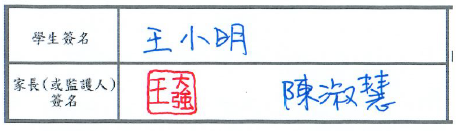 學生簽名 王小明
家長(或監護人)簽名 王大強 陳淑慧